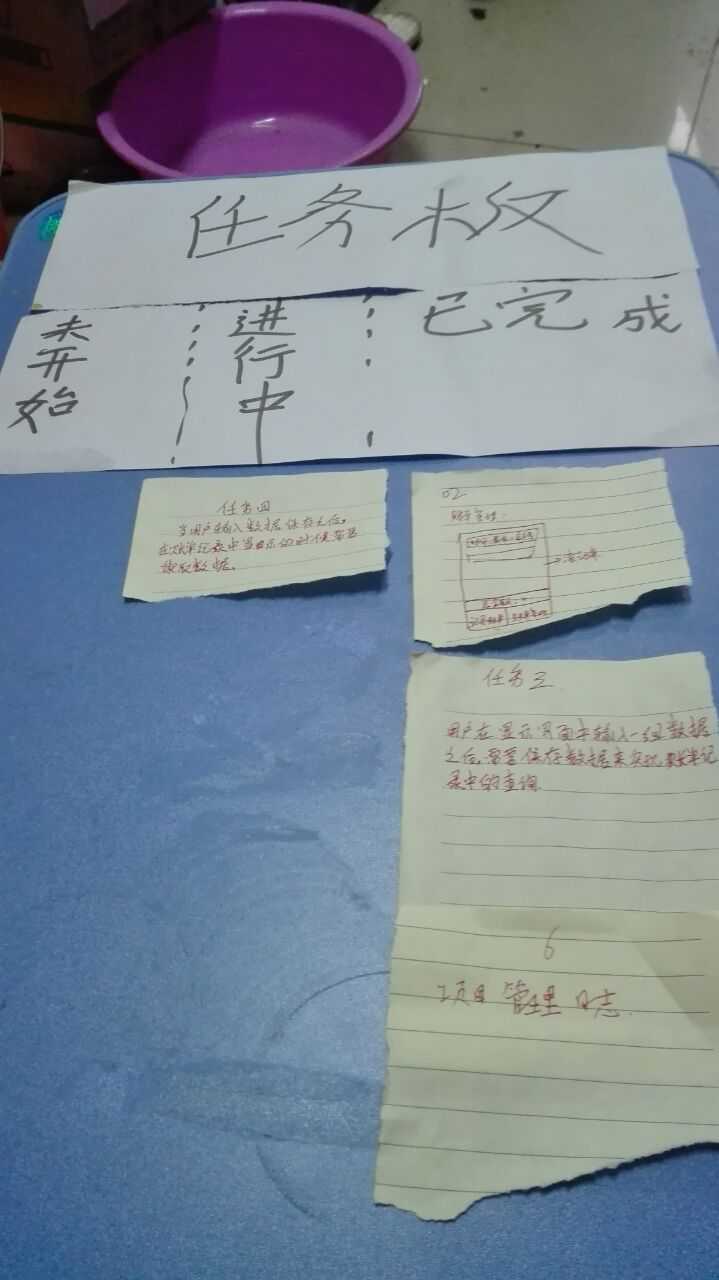 任务板
未开始
进行中
已完成
任务四
当用户输入数据保存之后,
在账单记录中当显示的时候需要
读取数据。
02
账单管理.
任务三
用户在显示界面中输入一组数据
之后,需要保存数据来实现账单记
录中的查询
6
项目管理日志.